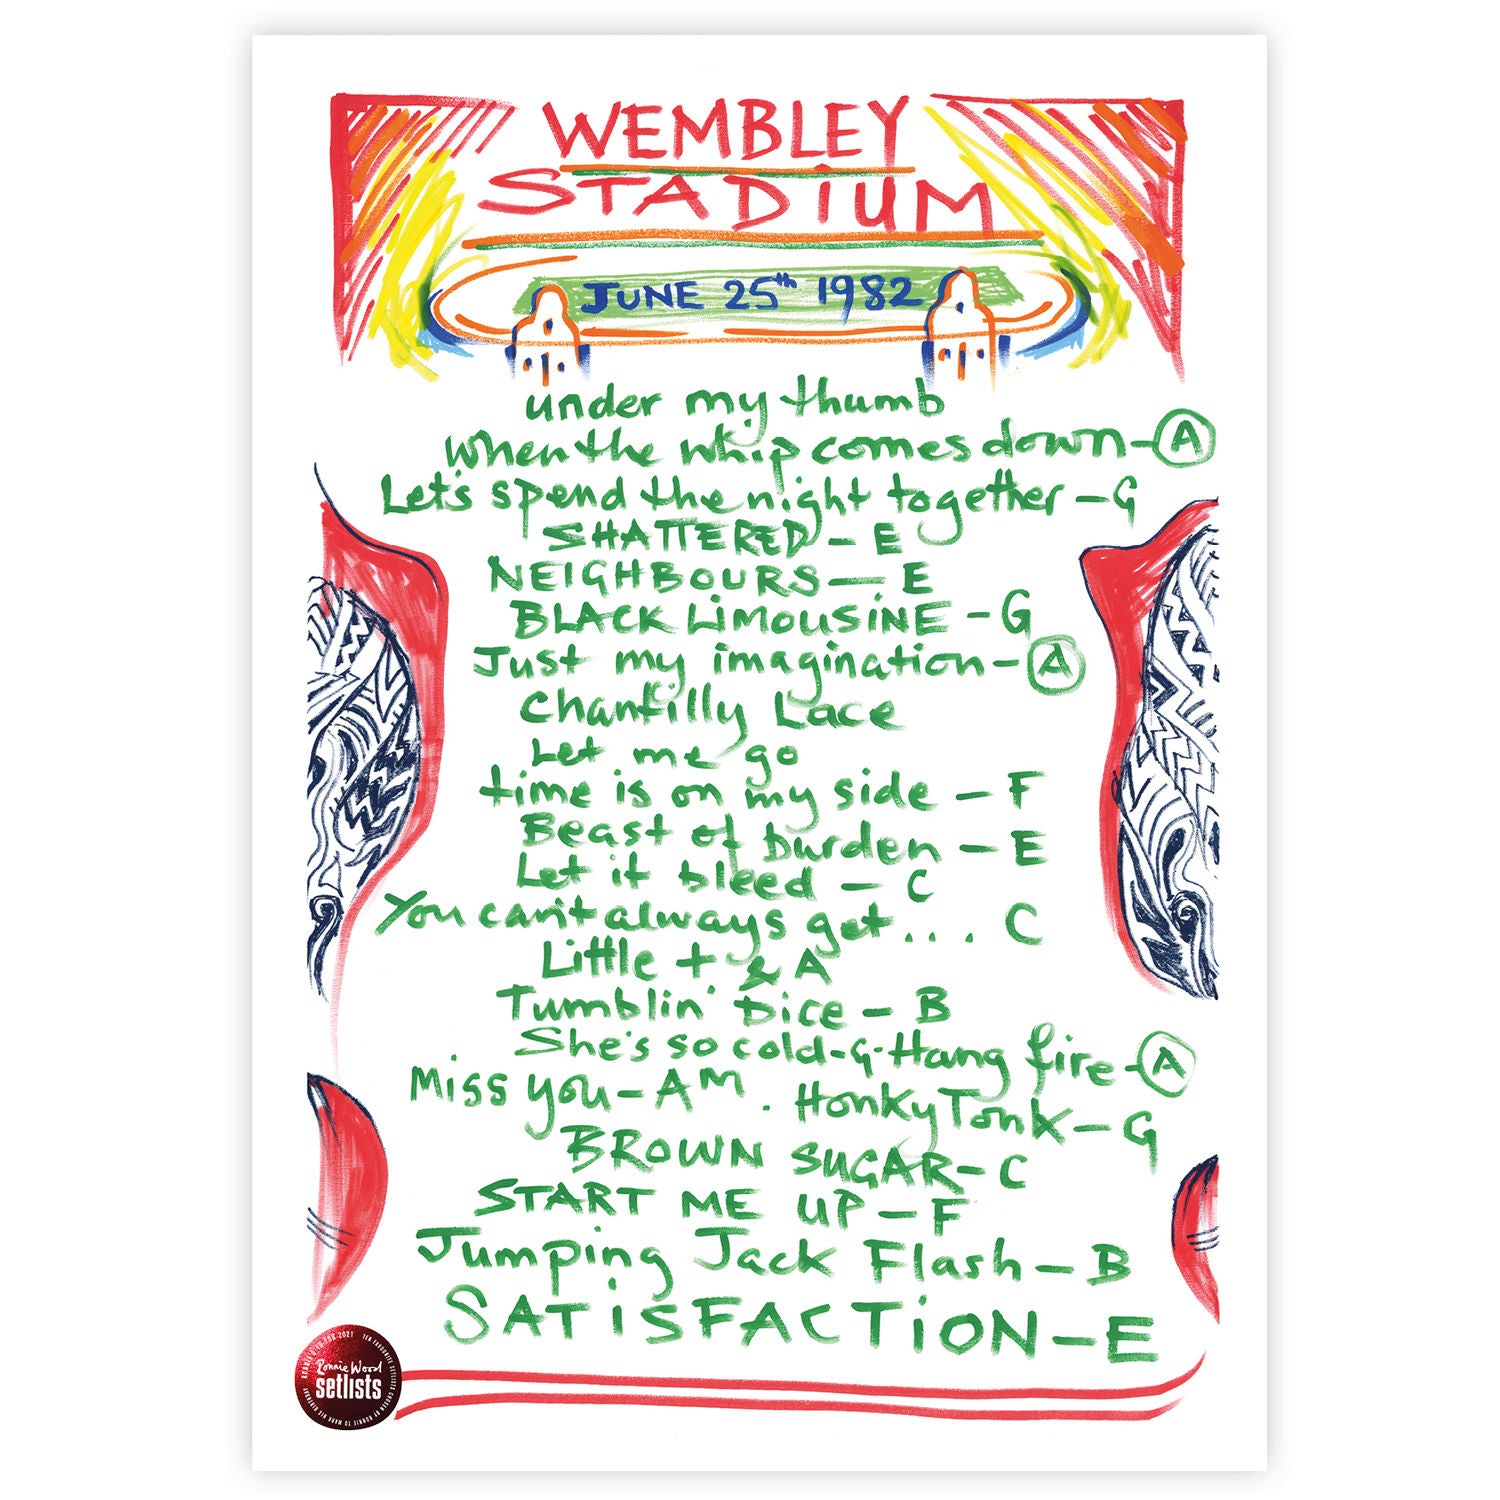 WEMBLEY
STADIUM
JUNE 25th 1982
under my thumb
When the whip comes down - A
Let's spend the night together - G
SHATTERED - E
NEIGHBOURS - E
BLACK LIMOUSINE - G
Just my imagination - A
Chantilly Lace
Let me go
time is on my side - F
Beast of burden - E
Let it bleed - C
You can't always get . . . C
Little t & A
Tumblin' Dice - B
She's so cold - G - Hang fire - A
Miss you - Am . Honky Tonk - G
BROWN SUGAR - C
START ME UP - F
Jumping Jack Flash - B
SATISFACTION - E
Ronnie Wood
setlists